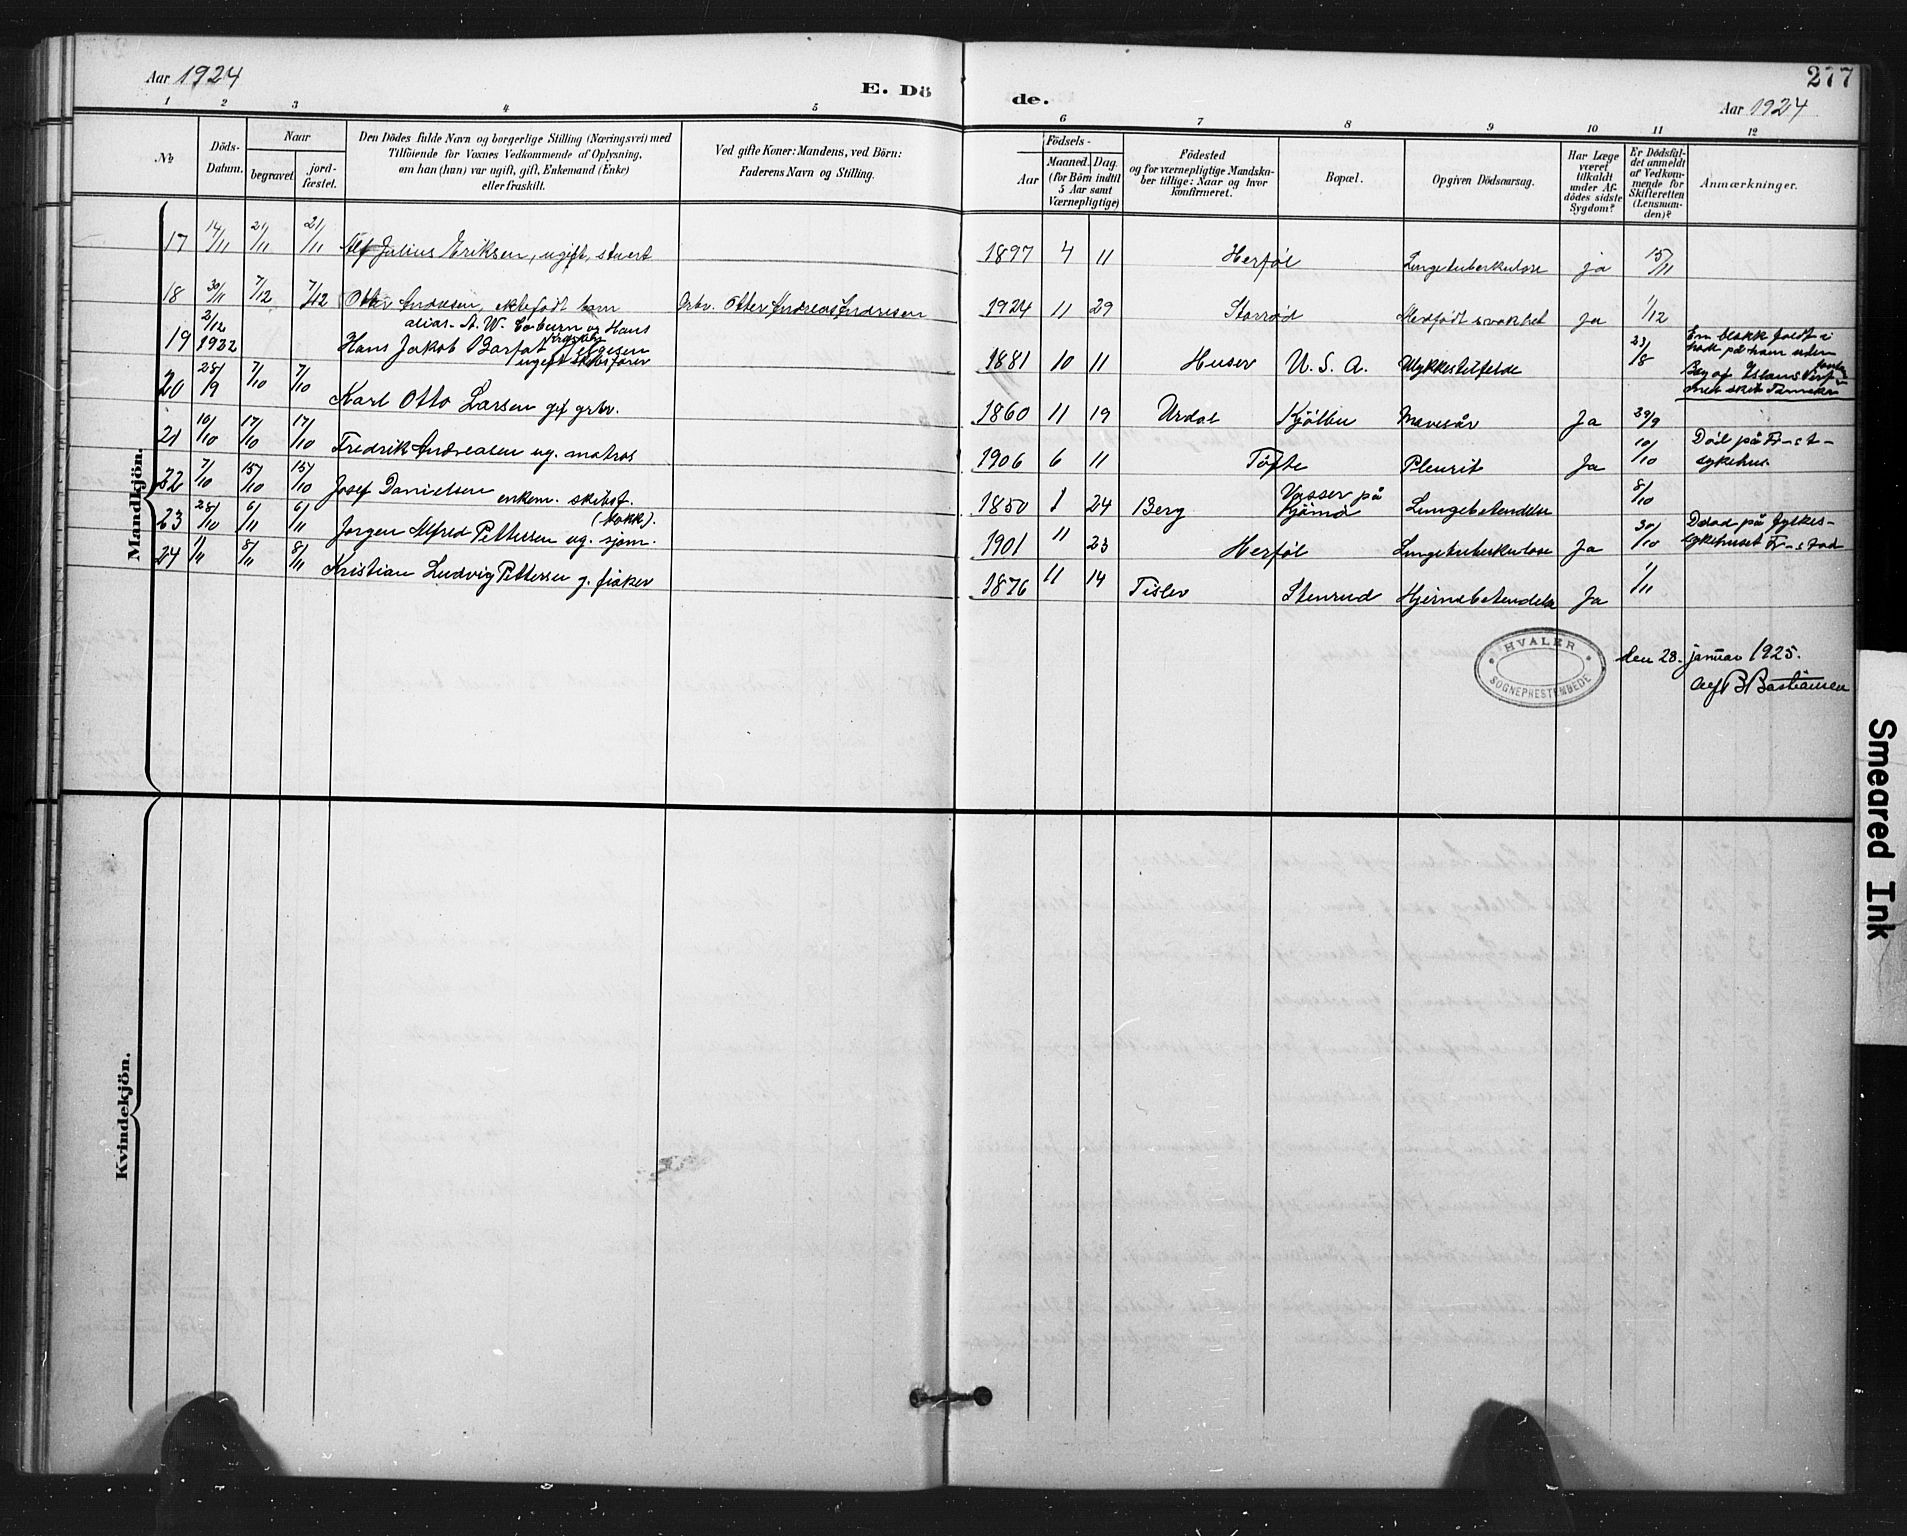 Aar 1924
E. Dö
de.
277
Aar 1924
1 2 3 4 5 6 7 8 9 10 11 12
№
Döds-
Datum.
Naar
begravet
jord-
fæstet.
Den Dödes fulde Navn og borgerlige Stilling (Næringsvei) med
Tilföiende for Voxnes Vedkommende af Oplysning,
om han (hun) var ugift, gift, Enkemand (Enke)
eller fraskilt.
Ved gifte Koner: Mandens, ved Börn:
Faderens Navn og Stilling.
Födsels-
Aar
Maaned. Dag.
(for Börn indtil
5 Aar samt
Værnepligtige)
Födested
og for værnepligtige Mandska-
ber tillige: Naar og hvor
konfirmeret.
Bopæl.
Opgiven Dödsaarsag.
Har Læge
været
tilkaldt
under Af-
dödes sidste
Sygdom?
Er Dödsfal-
det anmeldt
af Vedkom-
mende for
Skifteretten
(Lensman-
den)?
Anmærkninger.
Mandkjön.
17 14/11 21/11 21/11 Alf Julius Eriksen, ugift, stuert 1897 4 11 Herføl Lungetuberkulose ja 15/11
18 30/11 7/12 7/12 Otter Andresen, ektefødt barn Grbr. Otter Andreas Andresen 1924 11 29 Storrød Medfødt svakhet ja 1/12
alias A. W. Coburn og Hans
19 2/12 1932 Hans Jakob ugift 1881 10 11 Huser U. S. A. Ulykkestilfelde 23/8
20 28/9 7/10 7/10 Karl Otto Larsen gif grbr. 1860 11 19 Urdal Kjölbu Mavesår Ja 29/9
21 10/10 17/10 17/10 Fredrik Andreasen ug. matros 1906 6 11 Töfte Pleurit Ja 10/10 Död på Fr-st-
sykehus.
22 7/10 15/10 15/10 Josef Danielsen enkem. skibsf. 1850 1 24 Berg Vasser på
Tjömö Lungebetendelse 8/10
23 28/10 6/11 6/11 Jørgen Alfred Pettersen ug. sjöm. (kokk). 1901 11 23 Herføl Lungetuberkulose Ja 30/10 Död på fylkes-
sykehuset Fr-stad
24 1/11 8/11 8/11 Kristian Ludvig Pettersen g. fisker 1876 11 14 Tisler Stenrud Hjernebetendelse Ja 1/11
HVALER
SOGNEPRESTEMBEDE
den 28. januar 1925.
Alf B Bastiansen
Kvindekjön.
Smeared Ink